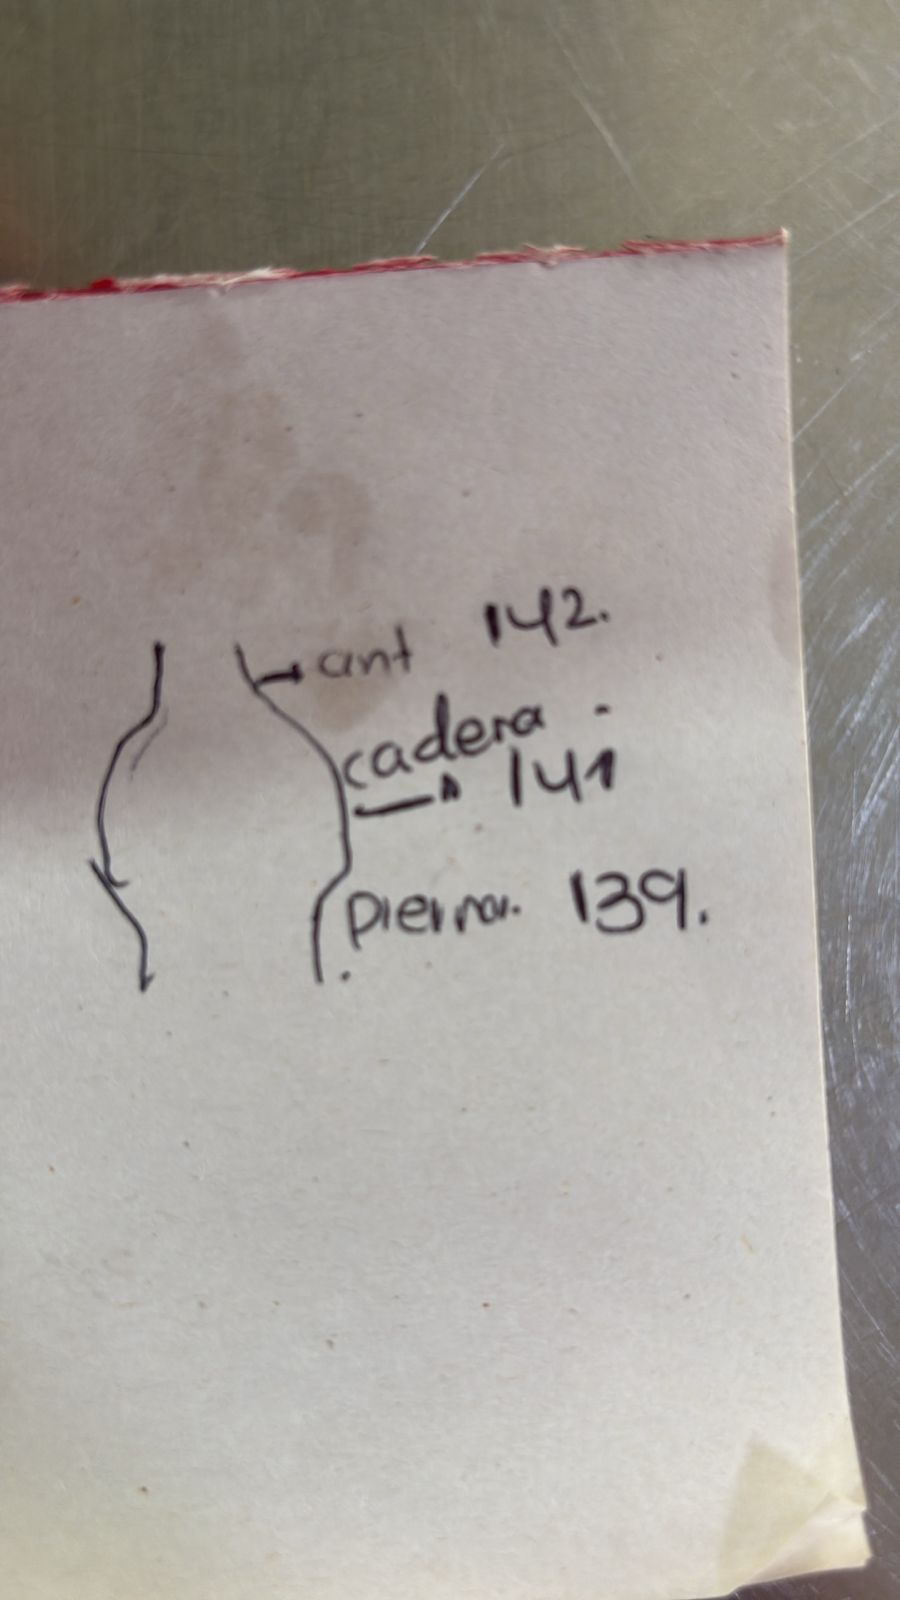 ant 142.
cadera.
141
Pierna. 139.